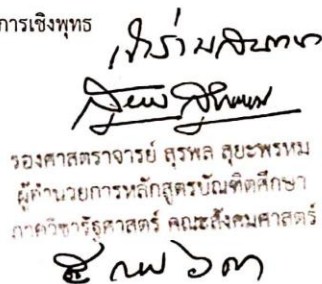 การเชิงพุทธ
เข้าร่วมสนทนา
รองศาสตราจารย์ สุรพล สุยะพรหม
ผู้อำนวยการหลักสูตรบัณฑิตศึกษา
ภาควิชารัฐศาสตร์ คณะสังคมศาสตร์